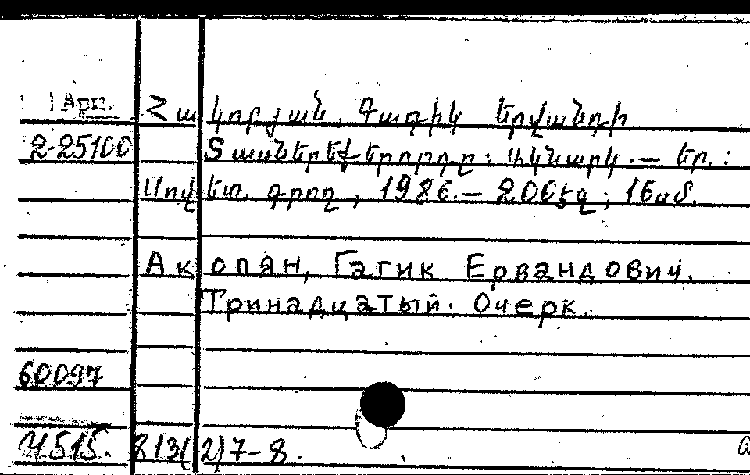 Հակոբյան, Գագիկ Երվանդի
2-25100 Տասներեքերորդը: Ակնարկ.— Եր.:
Սովետ. գրող, 1986.— 206էջ; 16սմ.
Акопян, Гагик Ервандович.
Тринадцатый. Очерк.
60097
813(2)7-8.